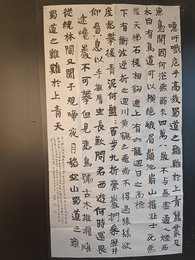 噫吁嚱危乎高哉蜀道之難難於上青天蠶叢及
魚鳧開國何茫然爾來四萬八千歲不與秦塞通人煙西
當太白有鳥道可以橫絕峨眉巔地崩山摧壯士死然
後天梯石棧相鉤連上有六龍回日之高標
下有衝波逆折之迴川黃鶴之飛尚不得過猿猱欲
度愁攀援青泥何盤盤百步九折縈巖巒捫參歷井
仰脅息以手撫膺坐長歎問君西遊何時還畏
途巉巖不可攀但見悲鳥號古木雄飛雌
從繞林間又聞子規啼夜月愁空山蜀道之難
蜀道之難難於上青天